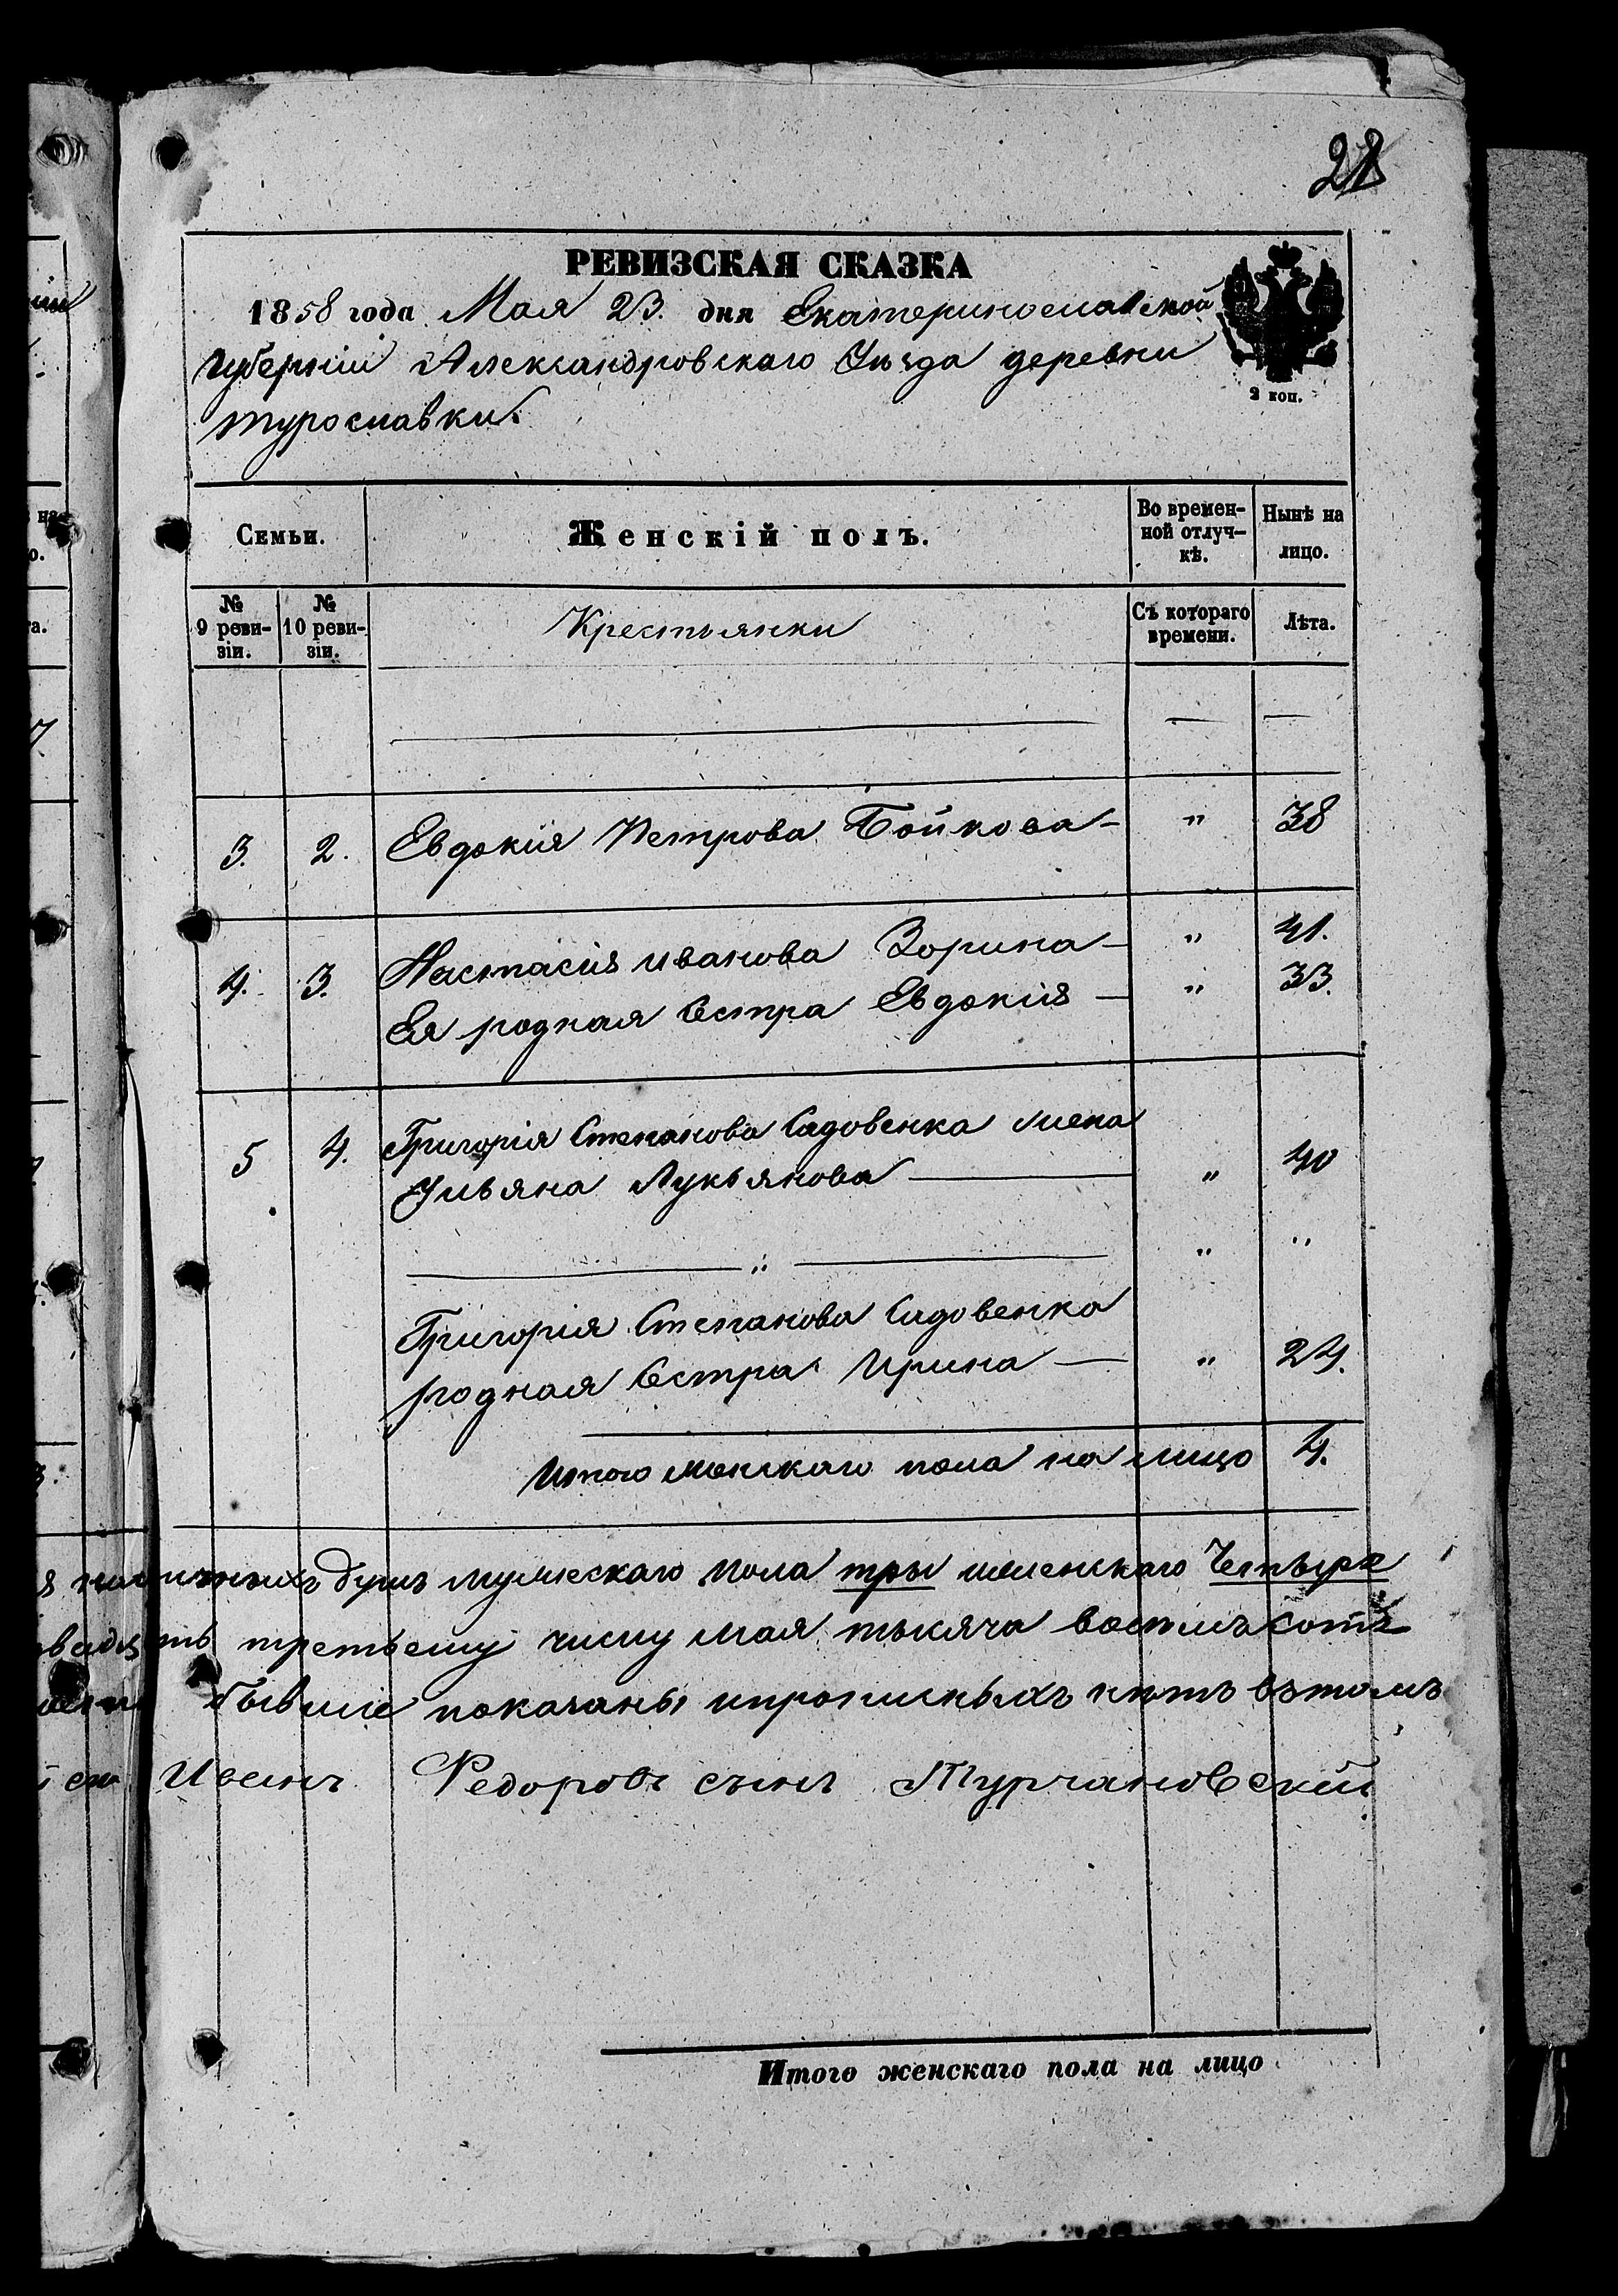 28
РЕВИЗСКАЯ СКАЗКА
1858 года Мая 23. дня Екатеринославской
Губерніи Александровскаго Уѣзда деревни
Турославки.
2 коп.
Семьи.
Женскій полъ.
Во времен-
ной отлуч-
кѣ.
Нынѣ на
лицо.
№
9 реви-
зіи.
№
10 реви-
зіи.
Крестьянки
Съ котораго
времени.
Лѣта.
3. 2. Евдокія Петрова Бойкова — " 38
4. 3. Настасія Иванова Зорина — " 41.
Ея родная Сестра Евдокія — " 33.
5 4. Григорія Степанова Садовенка жена
Ульяна Лукьянова — " 40
— " — " "
Григорія Степанова Садовенка
родная Сестра Ирина — " 24.
Итого женскаго пола на лицо 4.
наличныхъ душъ мужескаго пола три женскаго Четыре
третьему числу мая тысяча восемьсотъ
бывшіе показаны и прописныхъ нѣтъ вътомъ
Иванъ Федоровъ сынъ Турчановскій.
Итого женскаго пола на лицо